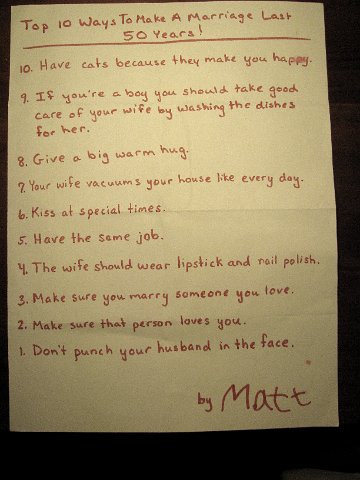 Top 10 Ways To Make A Marriage Last
50 Years!
10. Have cats because they make you happy.
9. If you're a boy you should take good
care of your wife by washing the dishes
for her.
8. Give a big warm hug.
7. Your wife vacuums your house like every day.
6. Kiss at special times.
5. Have the same job.
4. The wife should wear lipstick and nail polish.
3. Make sure you marry someone you love.
2. Make sure that person loves you.
1. Don't punch your husband in the face.
by Matt